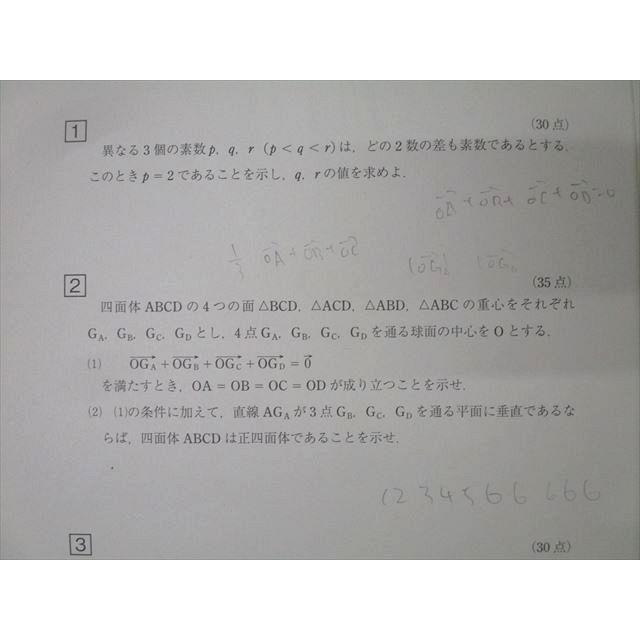 1
(30点)
異なる3個の素数p, q, r (p < q < r)は, どの2数の差も素数であるとする.
このときp = 2であることを示し, q, rの値を求めよ.
OA + OB + OC + OD = 0
1/3 OA + OB + OC
2
(35点)
四面体 ABCD の4つの面△BCD, △ACD, △ABD, △ABC の重心をそれぞれ
G_A, G_B, G_C, G_D とし, 4点G_A, G_B, G_C, G_D を通る球面の中心をOとする.
(1) OG_A + OG_B + OG_C + OG_D = 0
を満たすとき, OA = OB = OC = OD が成り立つことを示せ.
(2) (1)の条件に加えて, 直線AG_A が3点G_B, G_C, G_D を通る平面に垂直であるな
らば, 四面体ABCD は正四面体であることを示せ.
3
(30点)